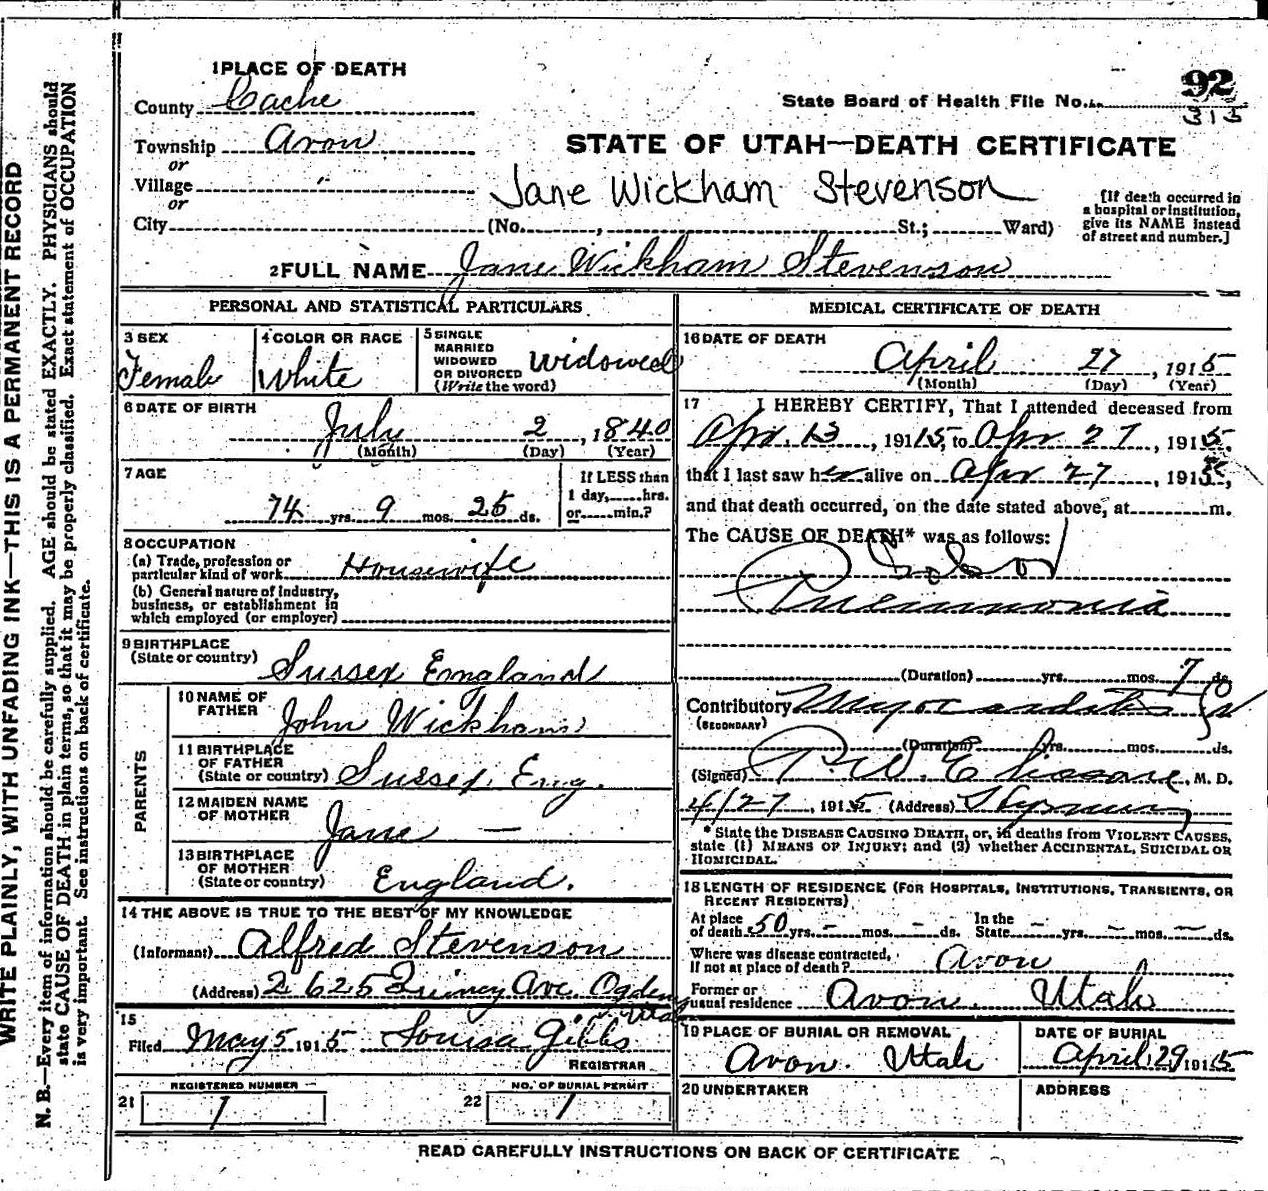 WRITE PLAINLY, WITH UNFADING INK—THIS IS A PERMANENT RECORD
N. B.—Every item of information should be carefully supplied. AGE should be stated EXACTLY. PHYSICIANS should
state CAUSE OF DEATH in plain terms, so that it may be properly classified. Exact statement of OCCUPATION
is very important. See instructions on back of certificate.
1 PLACE OF DEATH
County Cache
Township Avon
or
Village
or
City
State Board of Health File No. 92
313
STATE OF UTAH—DEATH CERTIFICATE
Jane Wickham Stevenson
(No. , St.; Ward)
[If death occurred in
a hospital or institution,
give its NAME instead
of street and number.]
2 FULL NAME Jane Wickham Stevenson
PERSONAL AND STATISTICAL PARTICULARS
3 SEX
Female
4 COLOR OR RACE
White
5 SINGLE
MARRIED
WIDOWED
OR DIVORCED
(Write the word)
Widowed
6 DATE OF BIRTH
July 2, 1840
(Month) (Day) (Year)
7 AGE
74 yrs. 9 mos. 25 ds.
If LESS than
1 day, hrs.
or min.?
8 OCCUPATION
(a) Trade, profession or
particular kind of work Housewife
(b) General nature of industry,
business, or establishment in
which employed (or employer)
9 BIRTHPLACE
(State or country) Sussex England
PARENTS
10 NAME OF
FATHER John Wickham
11 BIRTHPLACE
OF FATHER
(State or country) Sussex, Eng.
12 MAIDEN NAME
OF MOTHER Jane —
13 BIRTHPLACE
OF MOTHER
(State or country) England.
14 THE ABOVE IS TRUE TO THE BEST OF MY KNOWLEDGE
(Informant) Alfred Stevenson
(Address) 2625 Quincy Ave. Ogden
Utah
15
Filed May 5 1915 Louisa Gibbs
REGISTRAR
REGISTERED NUMBER
21 1
NO. OF BURIAL PERMIT
22 1
MEDICAL CERTIFICATE OF DEATH
16 DATE OF DEATH
April 27, 1915
(Month) (Day) (Year)
17 I HEREBY CERTIFY, That I attended deceased from
Apr. 13, 1915, to Apr 27, 1915.
that I last saw her alive on Apr 27, 1915,
and that death occurred, on the date stated above, at m.
The CAUSE OF DEATH* was as follows:
Lobar
Pneumonia
(Duration) yrs. mos. 7 ds.
Contributory Myocarditis
(SECONDARY)
(Duration) yrs. mos. ds.
(Signed) , M. D.
4/27, 1915 (Address) Hyrum
* State the DISEASE CAUSING DEATH, or, in deaths from VIOLENT CAUSES,
state (1) MEANS OF INJURY; and (2) whether ACCIDENTAL, SUICIDAL OR
HOMICIDAL.
18 LENGTH OF RESIDENCE (FOR HOSPITALS, INSTITUTIONS, TRANSIENTS, OR
RECENT RESIDENTS)
At place
of death 50 yrs. – mos. – ds.
In the
State – yrs. – mos. – ds.
Where was disease contracted,
If not at place of death? Avon
Former or
usual residence Avon. Utah
19 PLACE OF BURIAL OR REMOVAL
Avon. Utah
DATE OF BURIAL
April 29, 1915
20 UNDERTAKER
ADDRESS
READ CAREFULLY INSTRUCTIONS ON BACK OF CERTIFICATE